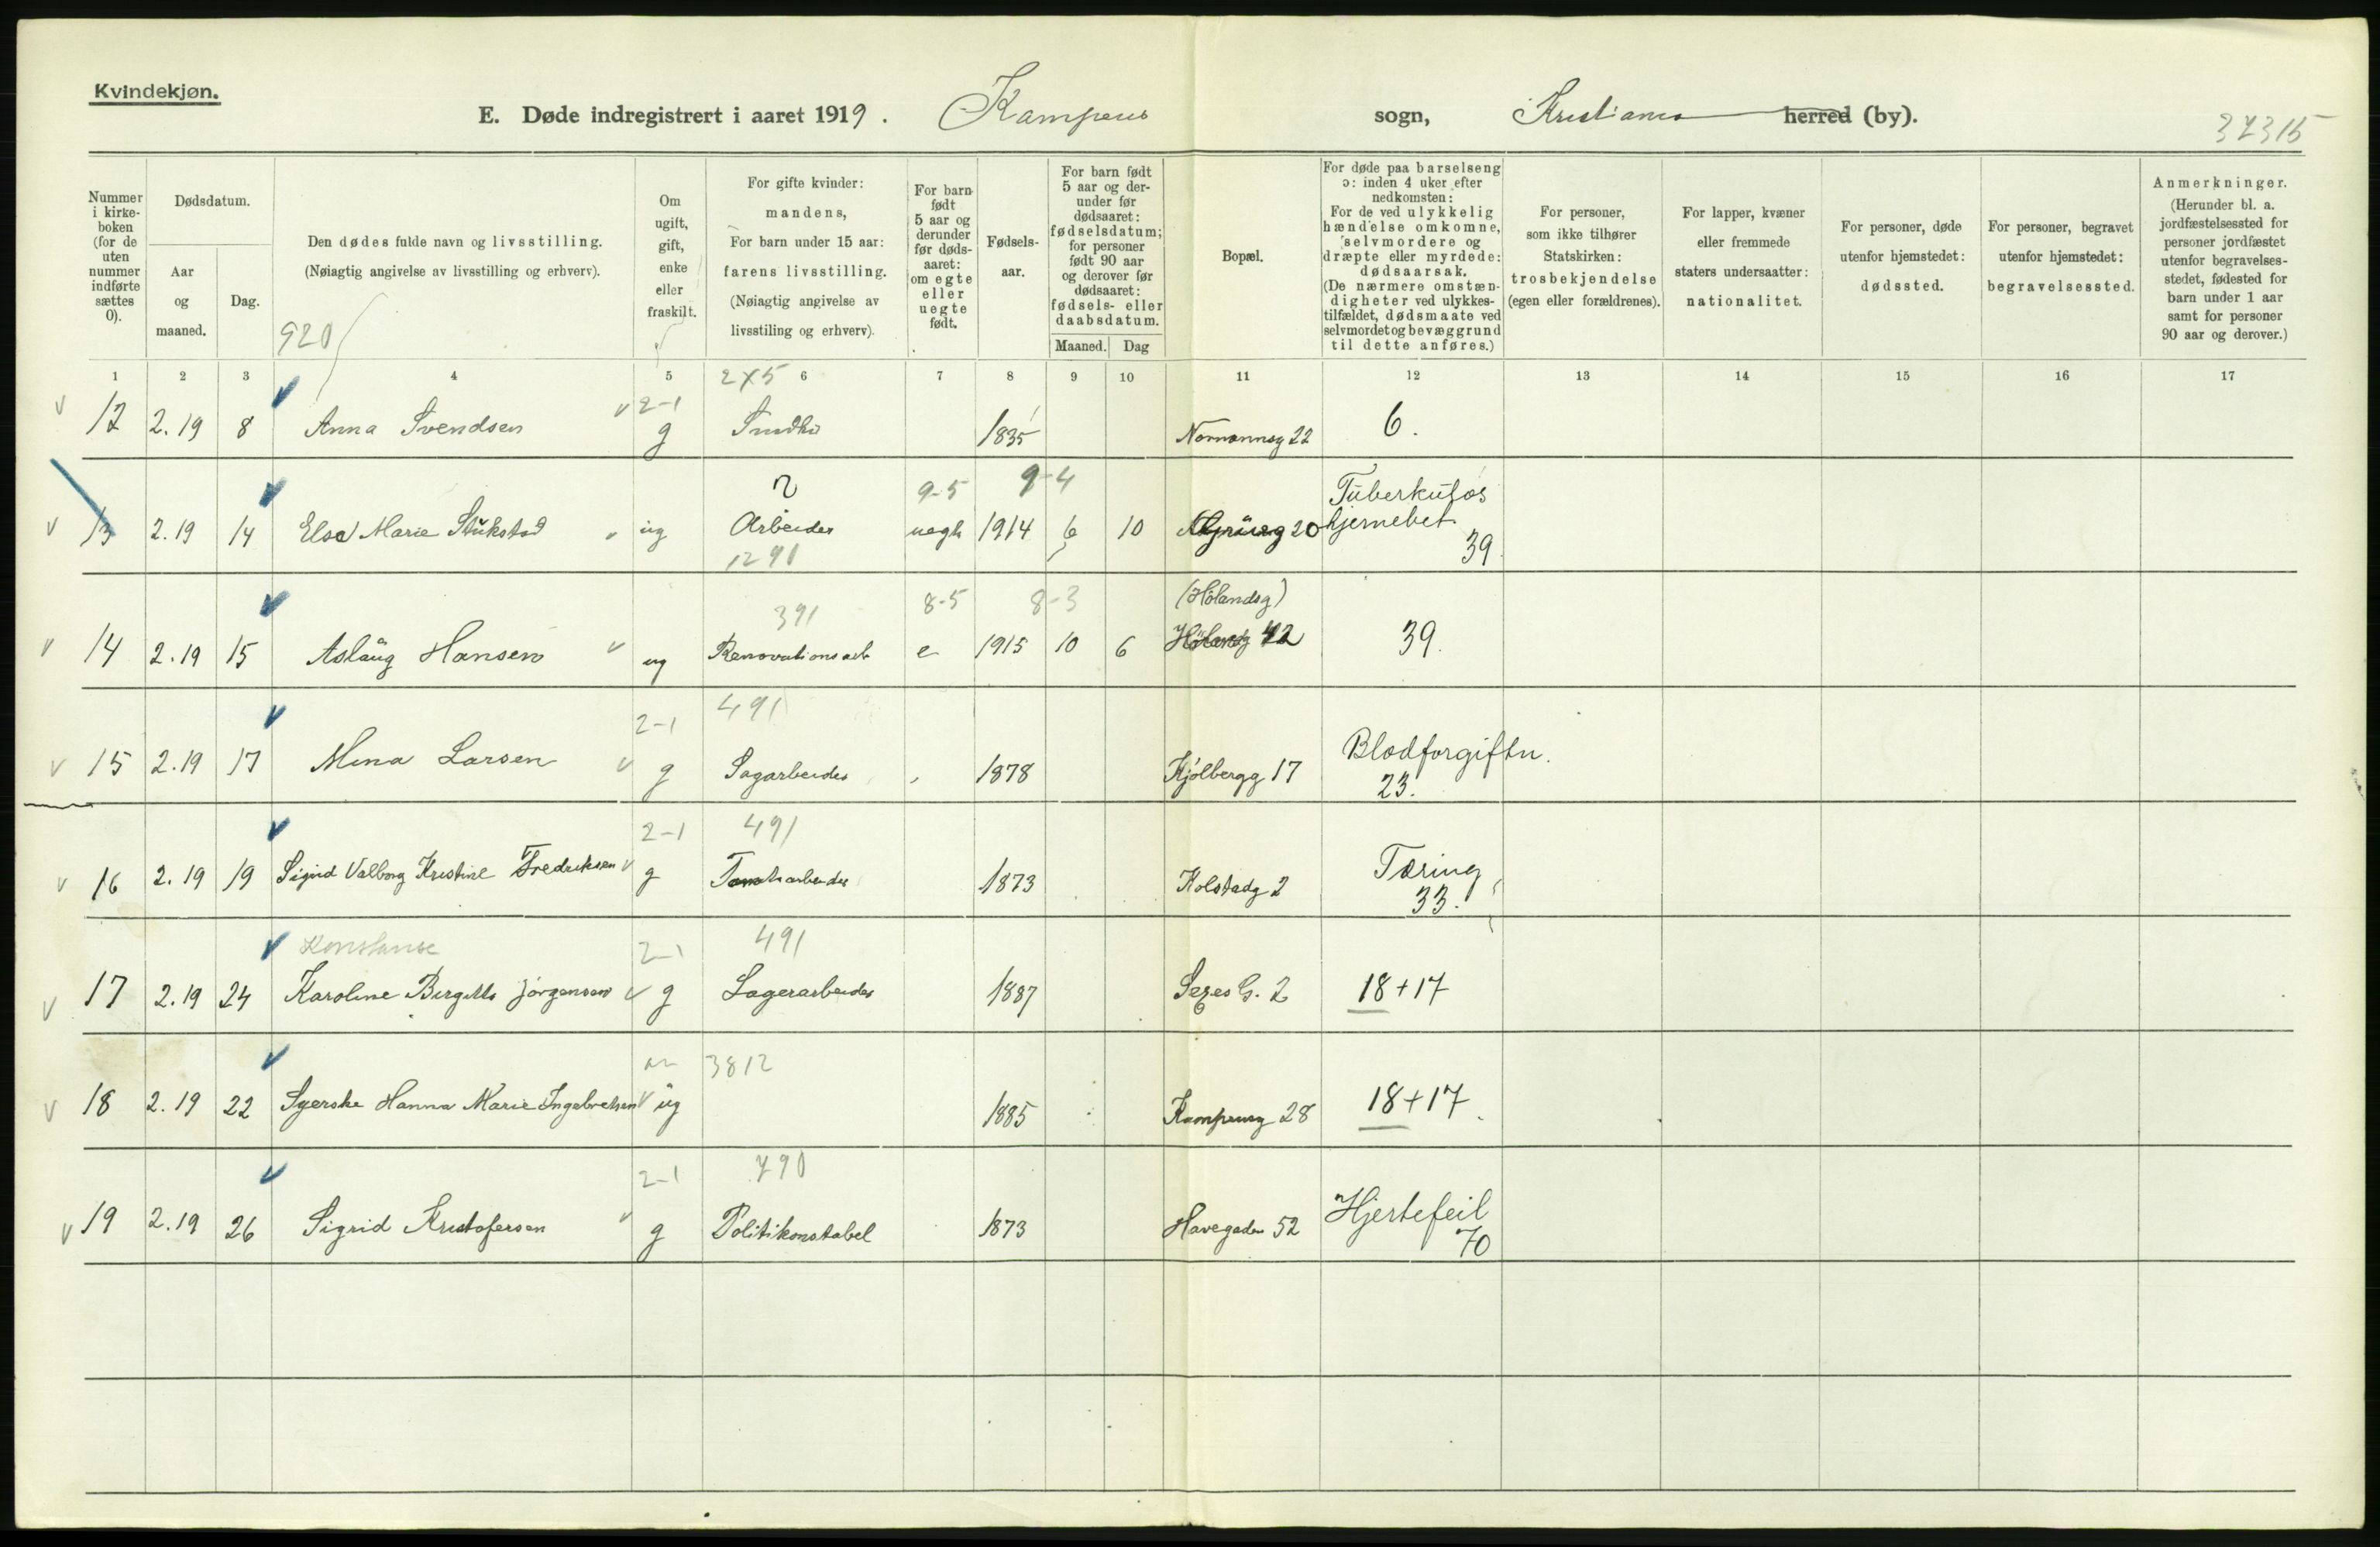 Kvindekjøn.
E. Døde indregistrert i aaret 1919. Kampens sogn, Kristiania herred (by).
37315
Nummer i kirke-boken (for de uten nummer indførte sættes 0).
Dødsdatum.
Aar og maaned.
Dag.
Den dødes fulde navn og livsstilling.
(Nøiagtig angivelse av livsstilling og erhverv).
920
Om ugift, gift, enke eller fraskilt.
For gifte kvinder: mandens,
For barn under 15 aar: farens livsstilling.
(Nøiagtig angivelse av livsstiling og erhverv).
For barn født 5 aar og derunder før døds-aaret: om egte eller uegte født.
Fødsels-aar.
For barn født 5 aar og der-under før dødsaaret: fødselsdatum; for personer født 90 aar og derover før dødsaaret: fødsels- eller daabsdatum.
Maaned. Dag
Bopæl.
For døde paa barselseng ɔ: inden 4 uker efter nedkomsten:
For de ved ulykkelig hændelse omkomne, selvmordere og dræpte eller myrdede: dødsaarsak.
(De nærmere omstæn-digheter ved ulykkes-tilfældet, dødsmaate ved selvmordet og bevæggrund til dette anføres.)
For personer, som ikke tilhører Statskirken: trosbekjendelse (egen eller forældrenes).
For lapper, kvæner eller fremmede staters undersaatter: nationalitet.
For personer, døde utenfor hjemstedet: dødssted.
For personer, begravet utenfor hjemstedet: begravelsessted.
Anmerkninger.
(Herunder bl. a. jordfæstelsessted for personer jordfæstet utenfor begravelses-stedet, fødested for barn under 1 aar samt for personer 90 aar og derover.)
1 2 3 4 5 6 7 8 9 10 11 12 13 14 15 16 17
2-1 2x5
12 2.19 8 Anna Svendsen g 1835 Normannsg 22 6.
9-5 9-4 Tuberkuløs
13 2.19 14 Elsa Marie Stukstad ug Arbeider uegte 1914 6 10 20 hjernebet.
1291 39.
391 8-5 8-3 (Hölandsg)
14 2.19 15 Aslaug Hansen ug Renovationsarb e 1915 10 6 Hölandsg 42 39.
2-1 491
15 2.19 17 Mina Larsen g Sagarbeider 1878 Kjølbergg 17 Blodforgiftn.
23.
2-1 491
16 2.19 19 Sigrid Valborg Kristine Fredriksen g Tomtearbeider 1873 Kolstadg 2 Tæring
33.
Konstanse 2-1 491
17 2.19 24 Karoline Birgitte Jörgensen g Lagerarbeider 1887 Sexes G. 2 18+17
3812
18 2.19 22 Syerske Hanna Marie Ingebretsen ug 1885 Kampensg 28 18+17.
2-1 790
19 2.19 26 Sigrid Kristofersen g Politikonstabel 1873 Havegaden 52 Hjertefeil
70